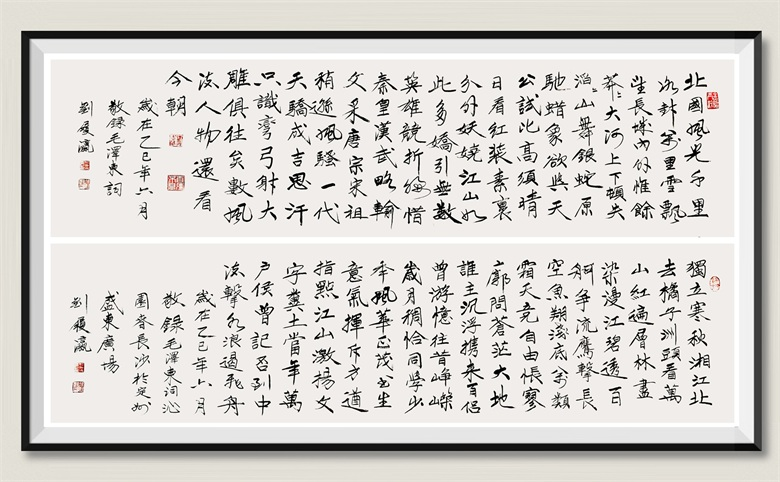 北國風光千里
冰封萬里雪飄
望長城內外惟餘
莽々大河上下頓失
滔々山舞銀蛇原
馳蜡象欲與天
公試比高須晴
日看紅裝素裹
分外妖嬈江山如
此多嬌引無數
英雄競折腰惜
秦皇漢武略輸
文采唐宗宋祖
稍遜風騷一代
天驕成吉思汗
只識彎弓射大
雕俱往矣數風
流人物還看
今朝
歲在乙巳年六月
敬錄毛澤東詞
劉履瀛
獨立寒秋湘江北
去橘子洲頭看萬
山紅遍層林盡
染漫江碧透百
舸爭流鷹擊長
空魚翔淺底萬類
霜天競自由悵寥
廓問蒼茫大地
誰主沉浮携來百侶
曾游憶往昔崢嶸
歲月稠恰同學少
年風華正茂書生
意氣揮斥方遒
指點江山激揚文
字糞土當年萬
戶侯曾記否到中
流擊水浪遏飛舟
歲在乙巳年六月
敬錄毛澤東詞沁
園春長沙於定州
盛東廣場
劉履瀛